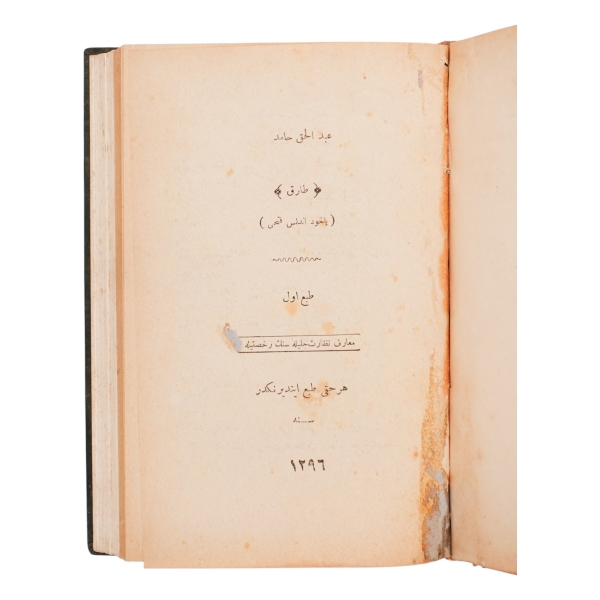 عبد الحق حامد
﴿ طارق ﴾
( ياخود اندلس فتحى )
طبع اول
معارف نظارت جليله سنك رخصتيله
هر حقى طبع ايتديرنكدر
سنه
١٢٩٦